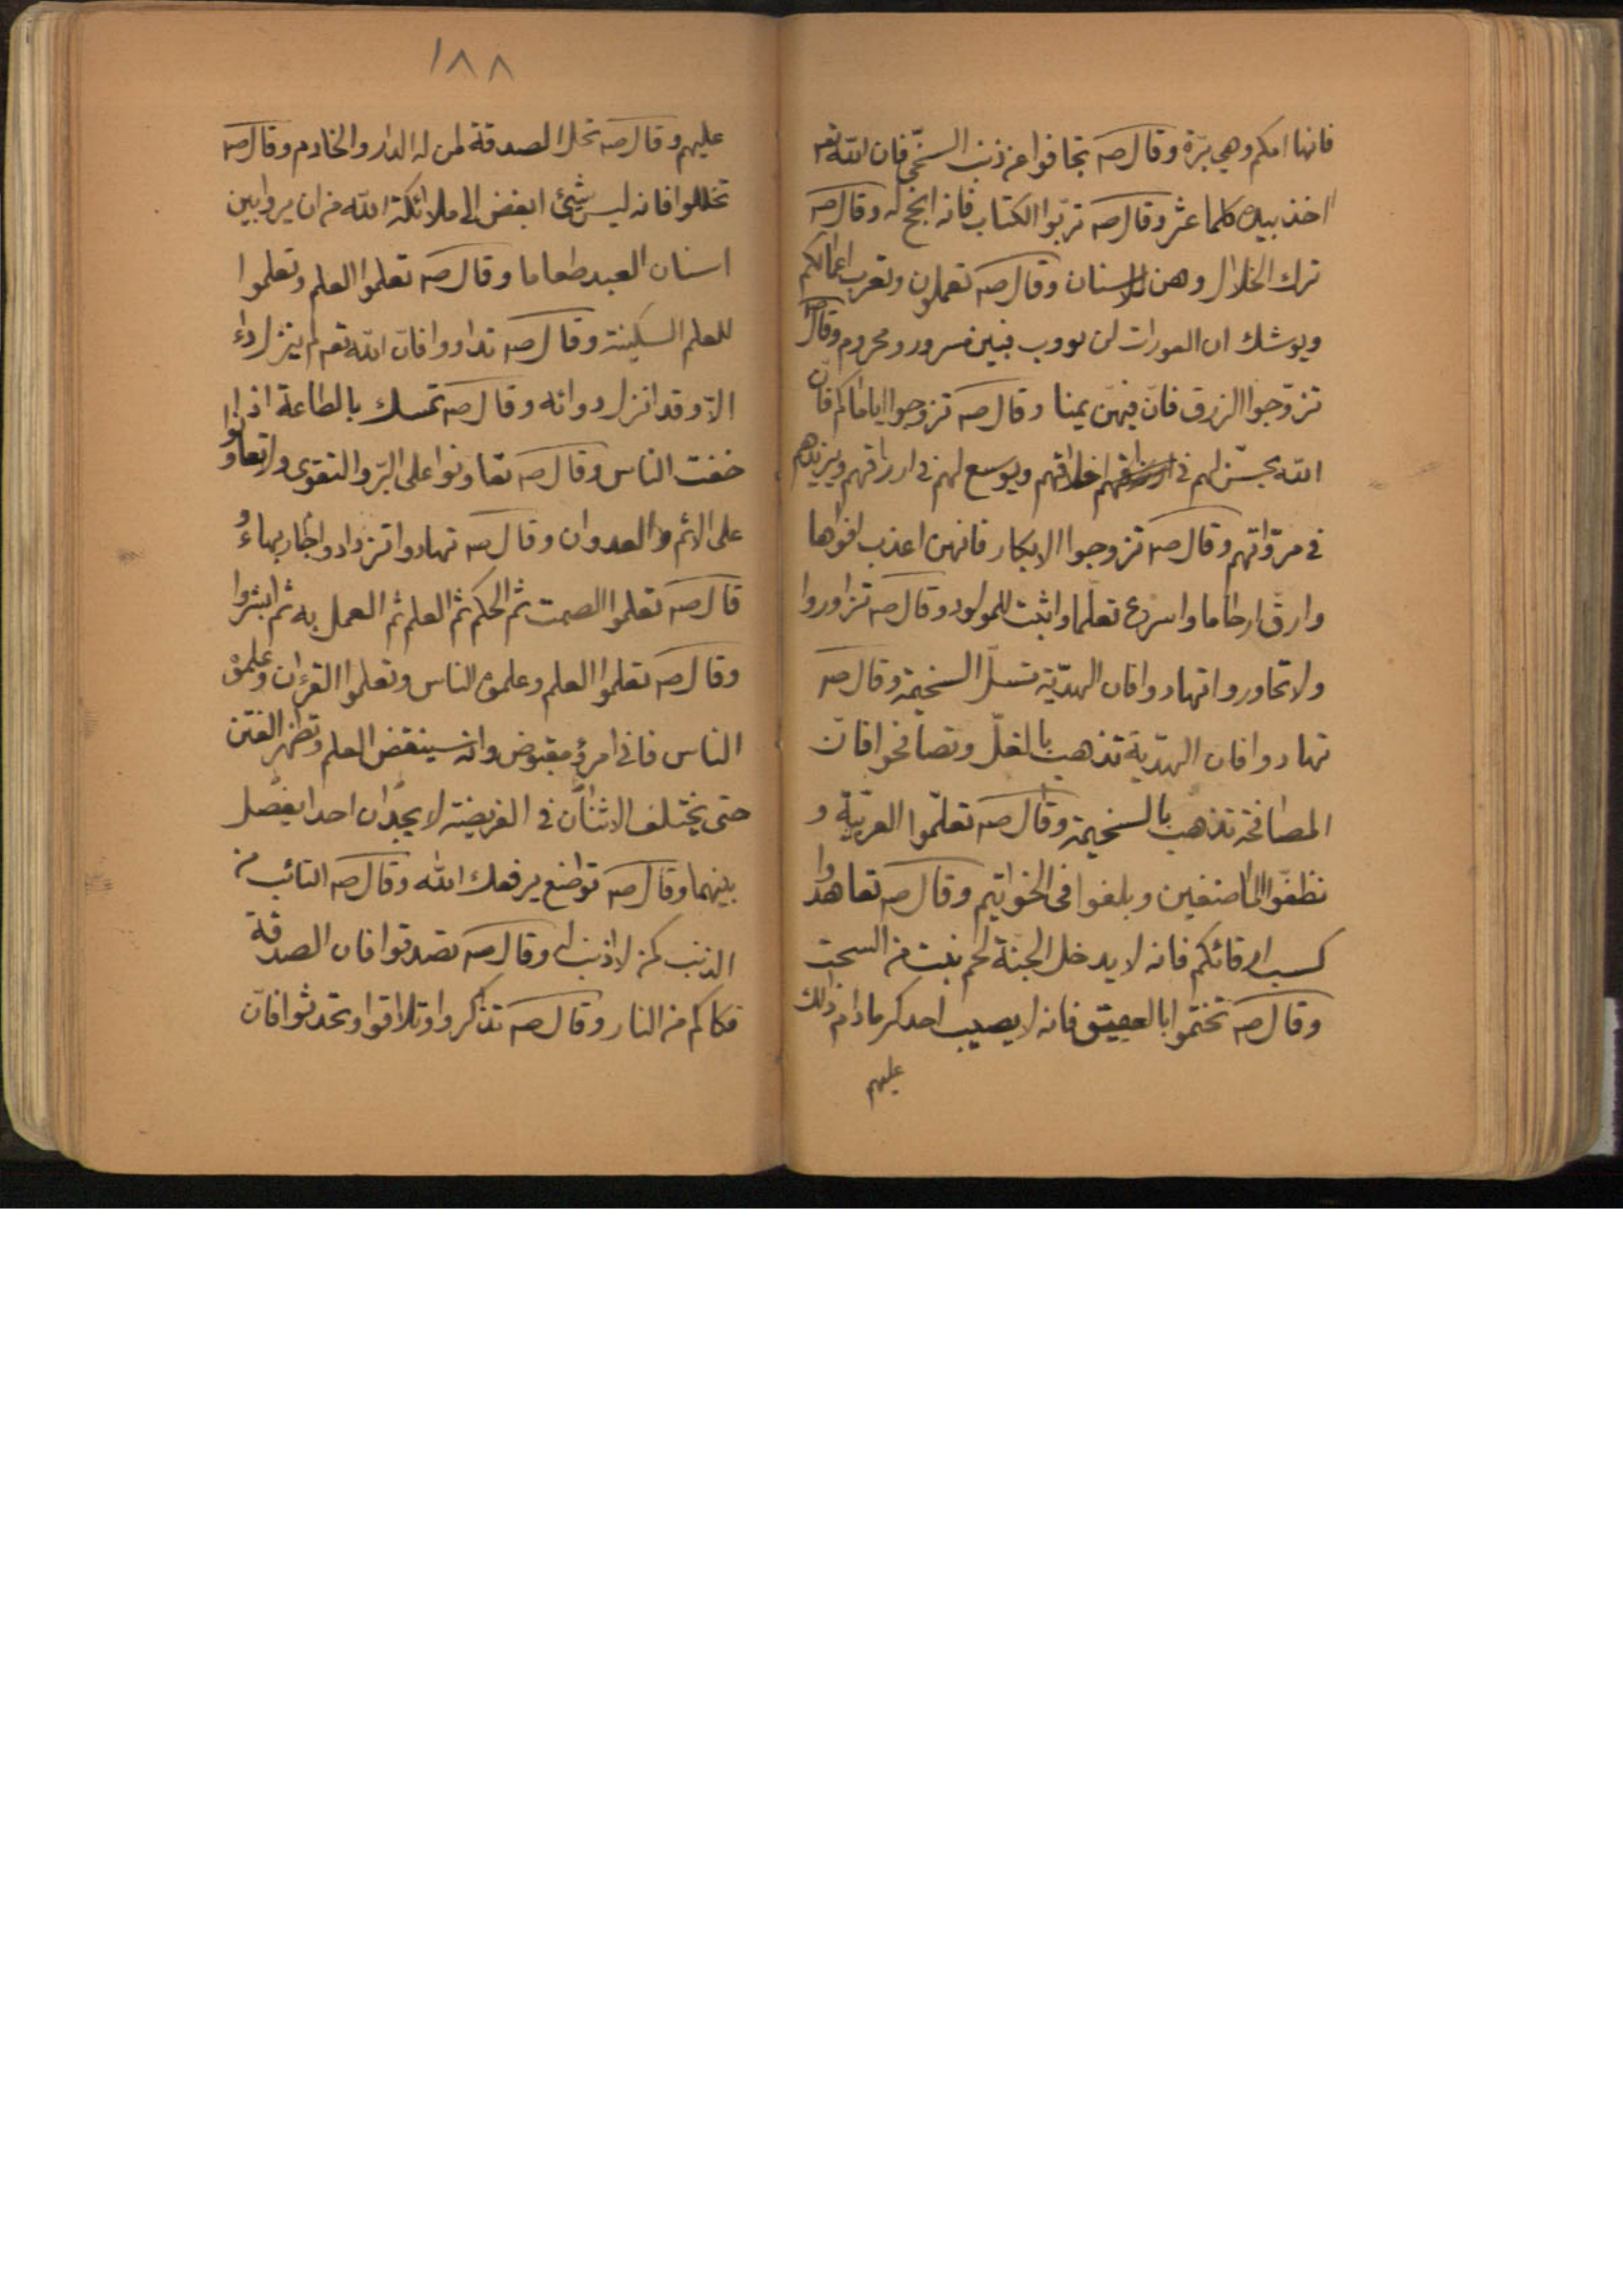 فانها امكم وهي برّة وقال صه تجافوا عن ذنب السخّي فان اللّه تعه
اخذ بيده كلما عثر وقال صه ترّبوا الكتاب فانه انجح له وقال صه
ترك الخلال وهن الاسنان وقال صه تعملون وتعرب اعمالكم
ويوشك ان العورات لن فبين مسرور ومحروم وقال صه
تزوّجوا الزرق فانّ فيهنّ يمنا وقال صه تزوجوا اياماكم فانّ
اللّه يحسّن لهم في اخلاقهم ويوسع لهم في ارزاقهم ويزيدهم
في مروّاتهم وقال صه تزوجوا الابكار فانهن اعذب افواها
وارقّ ارحاما واسرع تعلّما واثبت للمولود وقال صه تزاوروا
ولا تحاوروا تهادوا فان الهديّة تسلّ السخيمة وقال صه
تهادوا فان الهديّة تذهب بالغلّ وتصافحوا فانّ
المصافحة تذهب بالسخيمة وقال صه تعلّموا العربيّة و
نظفّوا الماضغين وبلغوا في الخواتيم وقال صه تعاهدوا
كسب ارقائكم فانه لا يدخل الجنة لحم نبت من السحت
وقال صه تختموا بالعقيق فانه لا يصيب احدكم مادام ذلك
عليهم
١٨٨
عليهم وقال صه تحل الصدقة لمن له الدار والخادم وقال صه
تخللوا فانه ليس شيئ ابغض الى ملائكة اللّه من ان يروا بين
اسنان العبد طعاما وقال صه تعلموا العلم وتعلموا
للعلم السكينة وقال صه تداووا فانّ اللّه تعه لم ينزل داء
الاّ وقد انزل دوائه وقال صه تمسك بالطاعة اذا
خفت الناس وقال صه تعاونوا على البرّ والتقوى ولا تعاونوا
على الاثم والعدوان وقال صه تهادوا تزدادوا حبا وبهاء و
قال صه تعلموا الصمت ثم الحكم ثم العلم ثم العمل به ثم ابشروا
وقال صه تعلموا العلم وعلموه الناس وتعلموا القرءان وعلموه
الناس فاني امرؤ مقبوض وانه سينقض العلم وتظهر الفتن
حتى يختلف الاثنان في الفريضة لا يجدان احدا يفصل
بينهما وقال صه تواضع يرفعك اللّه وقال صه التائب من
الذنب كمن لا ذنب له وقال صه تصدقوا فان الصدقة
فكاكم من النار وقال صه تذاكروا وتلاقوا وتحدثوا فانّ